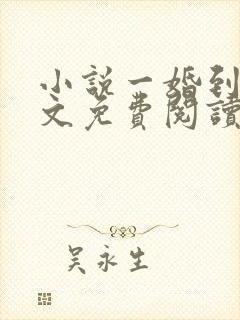 小說一婚到
文免費閱讀
吳永生